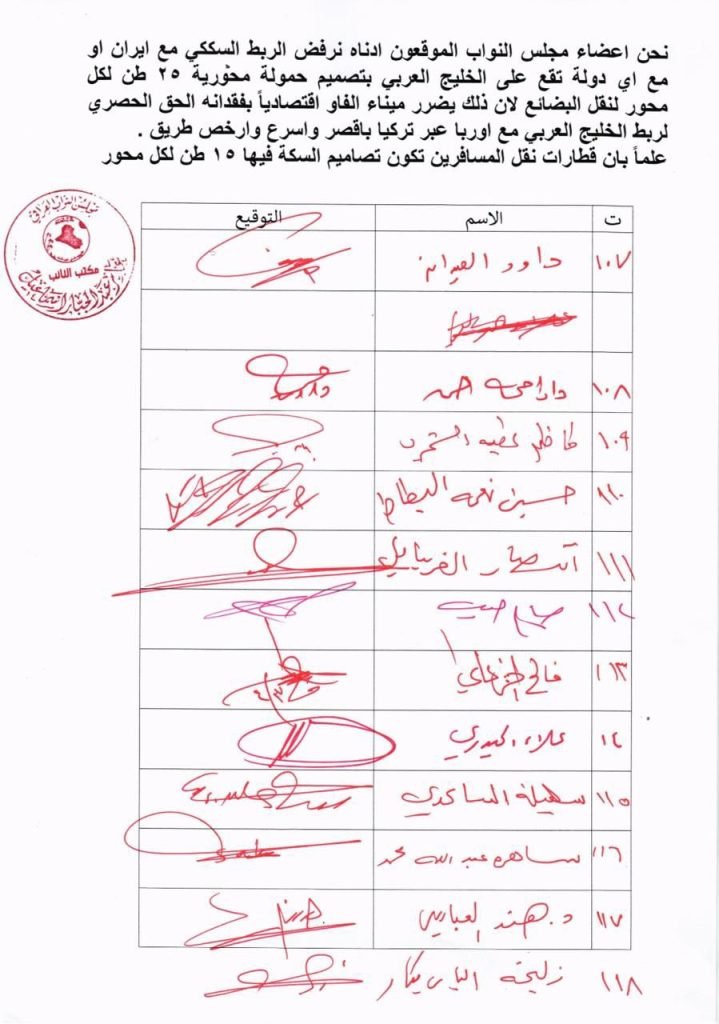 نحن اعضاء مجلس النواب الموقعون ادناه نرفض الربط السككي مع ايران او
مع اي دولة تقع على الخليج العربي بتصميم حمولة محوْرية ٢٥ طن لكل
محور لنقل البضائع لان ذلك يضرر ميناء الفاو اقتصادياً بفقدانه الحق الحصري
لربط الخليج العربي مع اوربا عبر تركيا باقصر واسرع وارخص طريق .
علماً بان قطارات نقل المسافرين تكون تصاميم السكة فيها ١٥ طن لكل محور
مجلس النواب العراقي
مكتب النائب
ت الاسم التوقيع
١٠٧ داود العيدان
١٠٨ احمد
١٠٩ كاظم عطيه الشمري
١١٠ حسين نعمه البطاط
١١١ انتصار الغريباوي
١١٢
١١٣ فالح الخزعلي
١٤ علاء الحيدري
١١٥ سهيلة الساعدي
١١٦ ساهره عبد الله محمد
١١٧ د. هند العباري
١١٨ زليخة الياس بكار